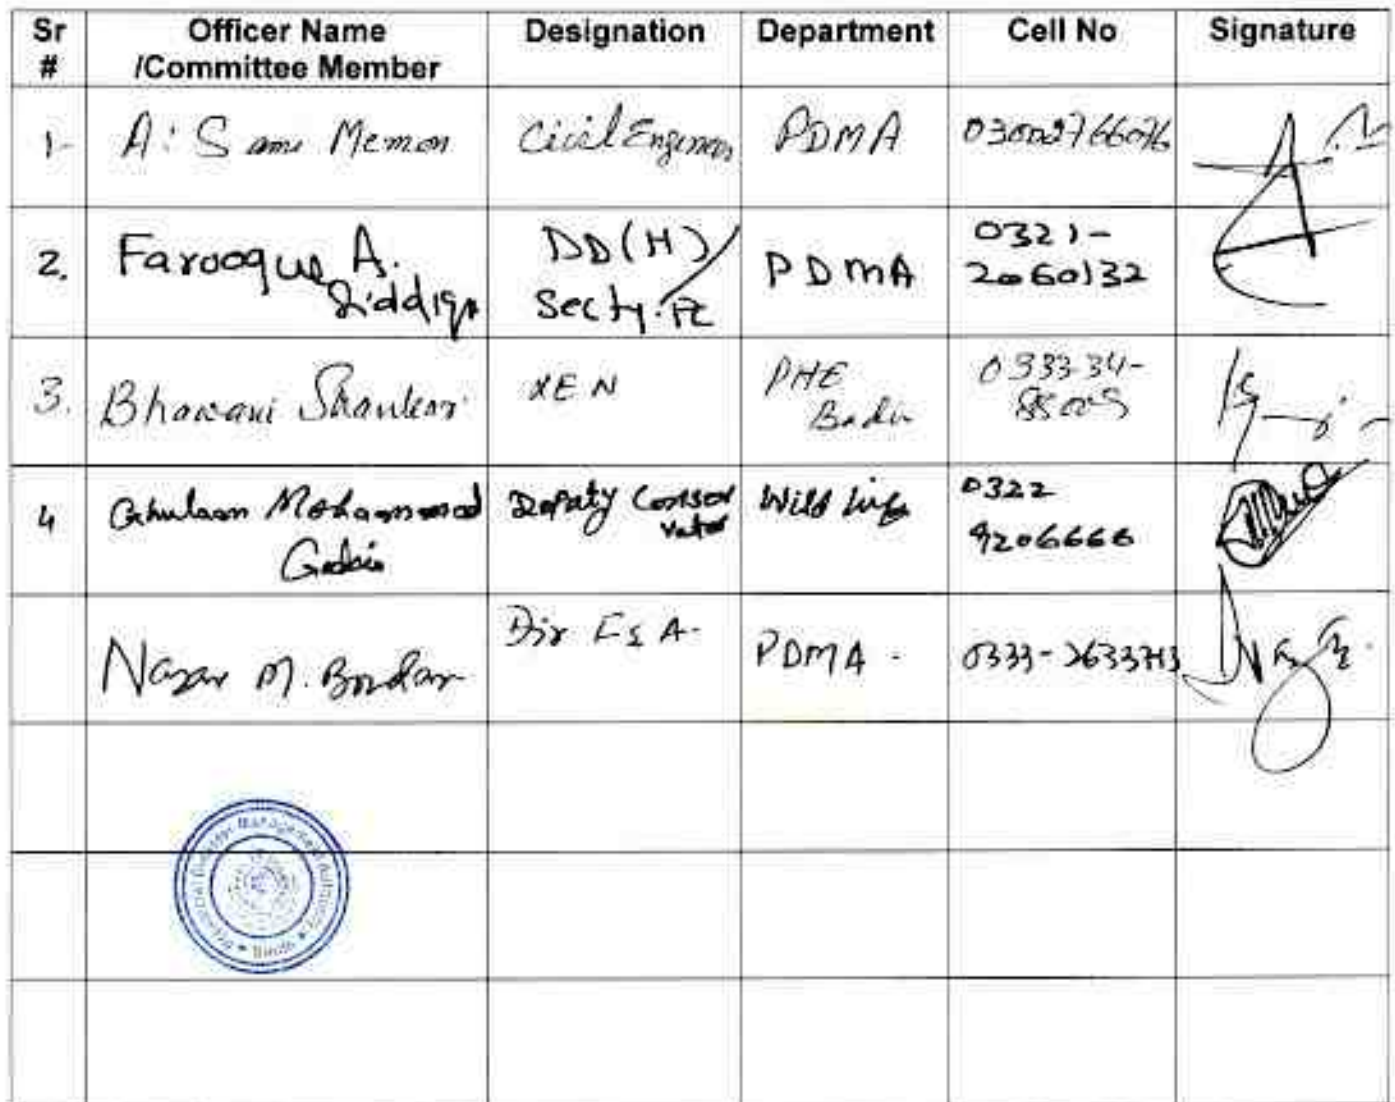 Sr # Officer Name /Committee Member Designation Department Cell No Signature
1- A. Sami Memon Civil Engineer PDMA
2. Farooque A. Siddiqi DD(H)/ Secty. PC PDMA 0321-2060132
3. Bhawani Shankar XEN PHE Badin
4 Ghulam Mohammad Deputy Conservator Wild Life 0322 9206666
Nazar M. PDMA -
Provincial Disaster Management Authority * Sindh *